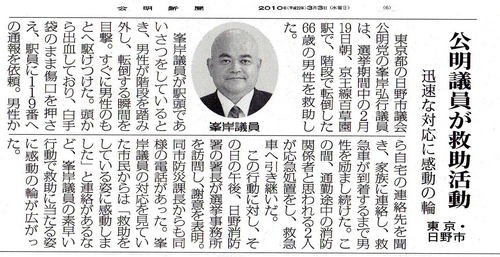 公明新聞
2010年(平成22年)3月3日(水曜日)
(6)
公明議員が救助活動
迅速な対応に感動の輪
東京・
日野市
東京都の日野市議会
公明党の峯岸弘行議員
は、選挙期間中の2月
19日朝、京王線百草園
駅で、階段で転倒した
66歳の男性を救助し
た。
峯岸議員が駅頭であ
いさつをしていると
き、男性が階段を踏み
外し、転倒する瞬間を
目撃。すぐに男性のも
とへ駆けつけた。頭か
ら出血しており、白手
袋のまま傷口を押さ
え、駅員に119番へ
の通報を依頼。男性か
峯岸議員
ら自宅の連絡先を聞
き、家族に連絡し、救
急車が到着するまで男
性を励まし続けた。こ
の間、通勤途中の消防
関係者と思われる2人
が応急処置をし、救急
車へ引き継いだ。
この行動に対し、そ
の日の午後、日野消防
署の署長が選挙事務所
を訪問し、謝意を表明。
同市防災課長からも同
様の電話があった。峯
岸議員の対応を見てい
た市民からは「救助を
している姿に感動しま
した」と連絡があるな
ど、峯岸議員の素早い
行動で救助に当たる姿
に感動の輪が広がっ
た。